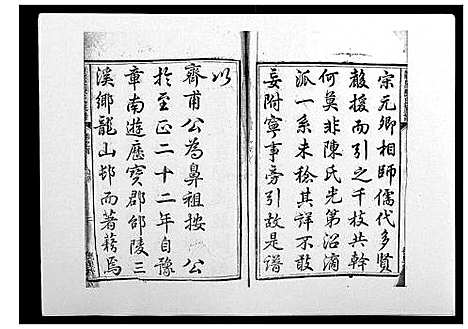 宗元卿相師儒代多賢
殽援而引之千枝共幹
何莫非陳氏光第沿滴
派一系未稔其詳不敢
妄附寧事旁引故是譜
以
齊甫公為鼻祖按 公
於至正二十二年自豫
章南遊歷寶郡邵陵三
溪鄉龍山邨而著藉焉